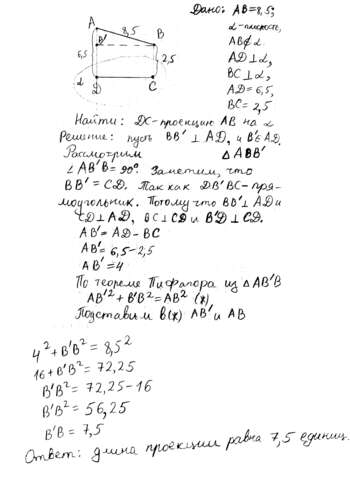 Дано: AB=8,5;
α-плоскость,
AB∉α
AD⊥α,
BC⊥α,
AD=6,5,
BC=2,5
A
8,5
B'
B
6,5
2,5
α
D
C
Найти: DC-проекцию AB на α
Решение: пусть BB'⊥AD, и B'∈AD.
Рассмотрим △ABB'
∠AB'B=90°. Заметим, что
BB'=CD. Так как DB'BC-пря-
моугольник. Потому что BB'⊥AD и
CD⊥AD, BC⊥CD и B'D⊥CD.
AB'=AD-BC
AB'=6,5-2,5
AB'=4
По теореме Пифагора из △AB'B
AB'²+B'B²=AB² (*)
Подставим в(*) AB' и AB
4²+B'B²=8,5²
16+B'B²=72,25
B'B²=72,25-16
B'B²=56,25
B'B=7,5
Ответ: длина проекции равна 7,5 единиц.